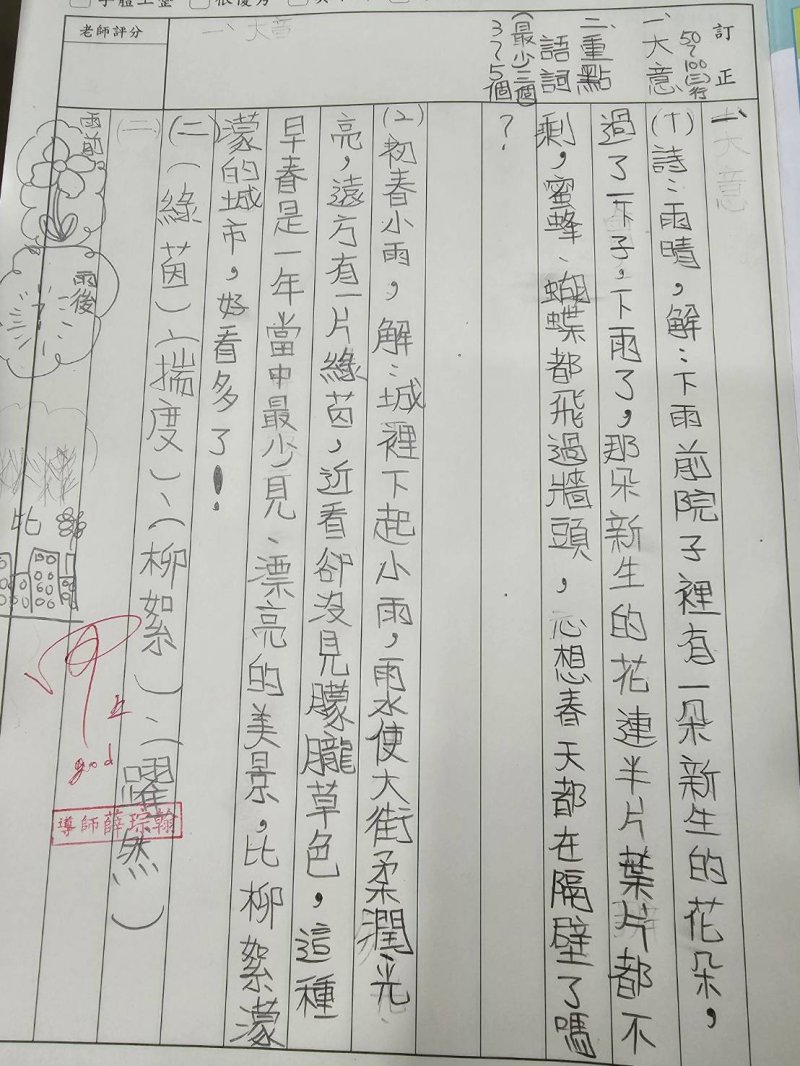 老師評分
訂正
一、大意
50~100(三)行
二、重點語詞
(最少三個
3~5個
一、大意
一、大意
(1)詩：雨晴，解：下雨前院子裡有一朵新生的花朵，
過了一下子，下雨了，那朵新生的花連半片葉片都不
剩，蜜蜂、蝴蝶都飛過牆頭，心想春天都在隔壁了嗎
？
(2)初春小雨，解：城裡下起小雨，雨水使大街柔潤、光
亮，遠方有一片綠茵，近看卻沒見朦朧草色，這種
早春是一年當中最少見、漂亮的美景，比柳絮濛
濛的城市，好看多了！
(二)(綠茵)、(揣度)、(柳絮)、(躍然)
(二)
雨前
雨後
比
good
導師薛琮翰